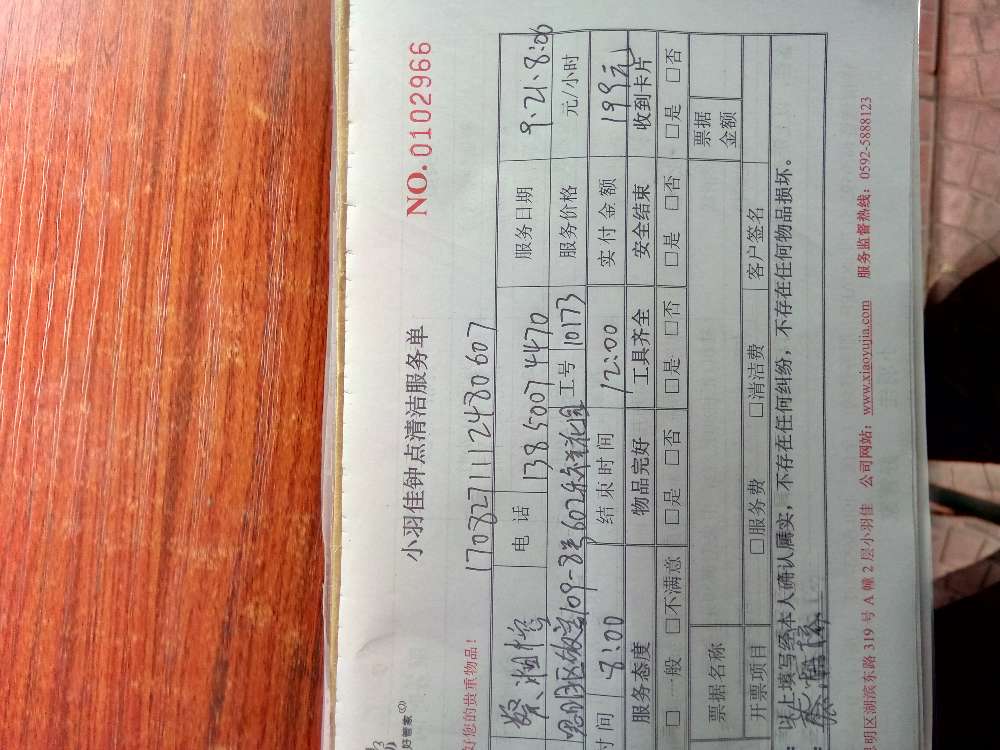 好管家
小羽佳钟点清洁服务单
NO.0102966
好您的贵重物品!
170827111248 0607
电 话 138 5007 4470 服务日期 9.21.8:00
109-8号602 工号 10173 服务价格 元/小时
时间 8:00 结束时间 12:00 实付金额 199元
服务态度 物品完好 工具齐全 安全结束 收到卡片
□一般 □不满意 □是 □否 □是 □否 □是 □否 □是 □否
票据名称 票据金额
开票项目 □服务费 □清洁费 客户签名
:以上填写经本人确认属实,不存在任何纠纷,不存在任何物品损坏。
明区湖滨东路 319 号 A 幢 2 层小羽佳 公司网站:www.xiaoyujia.com 服务监督热线:0592-5888123